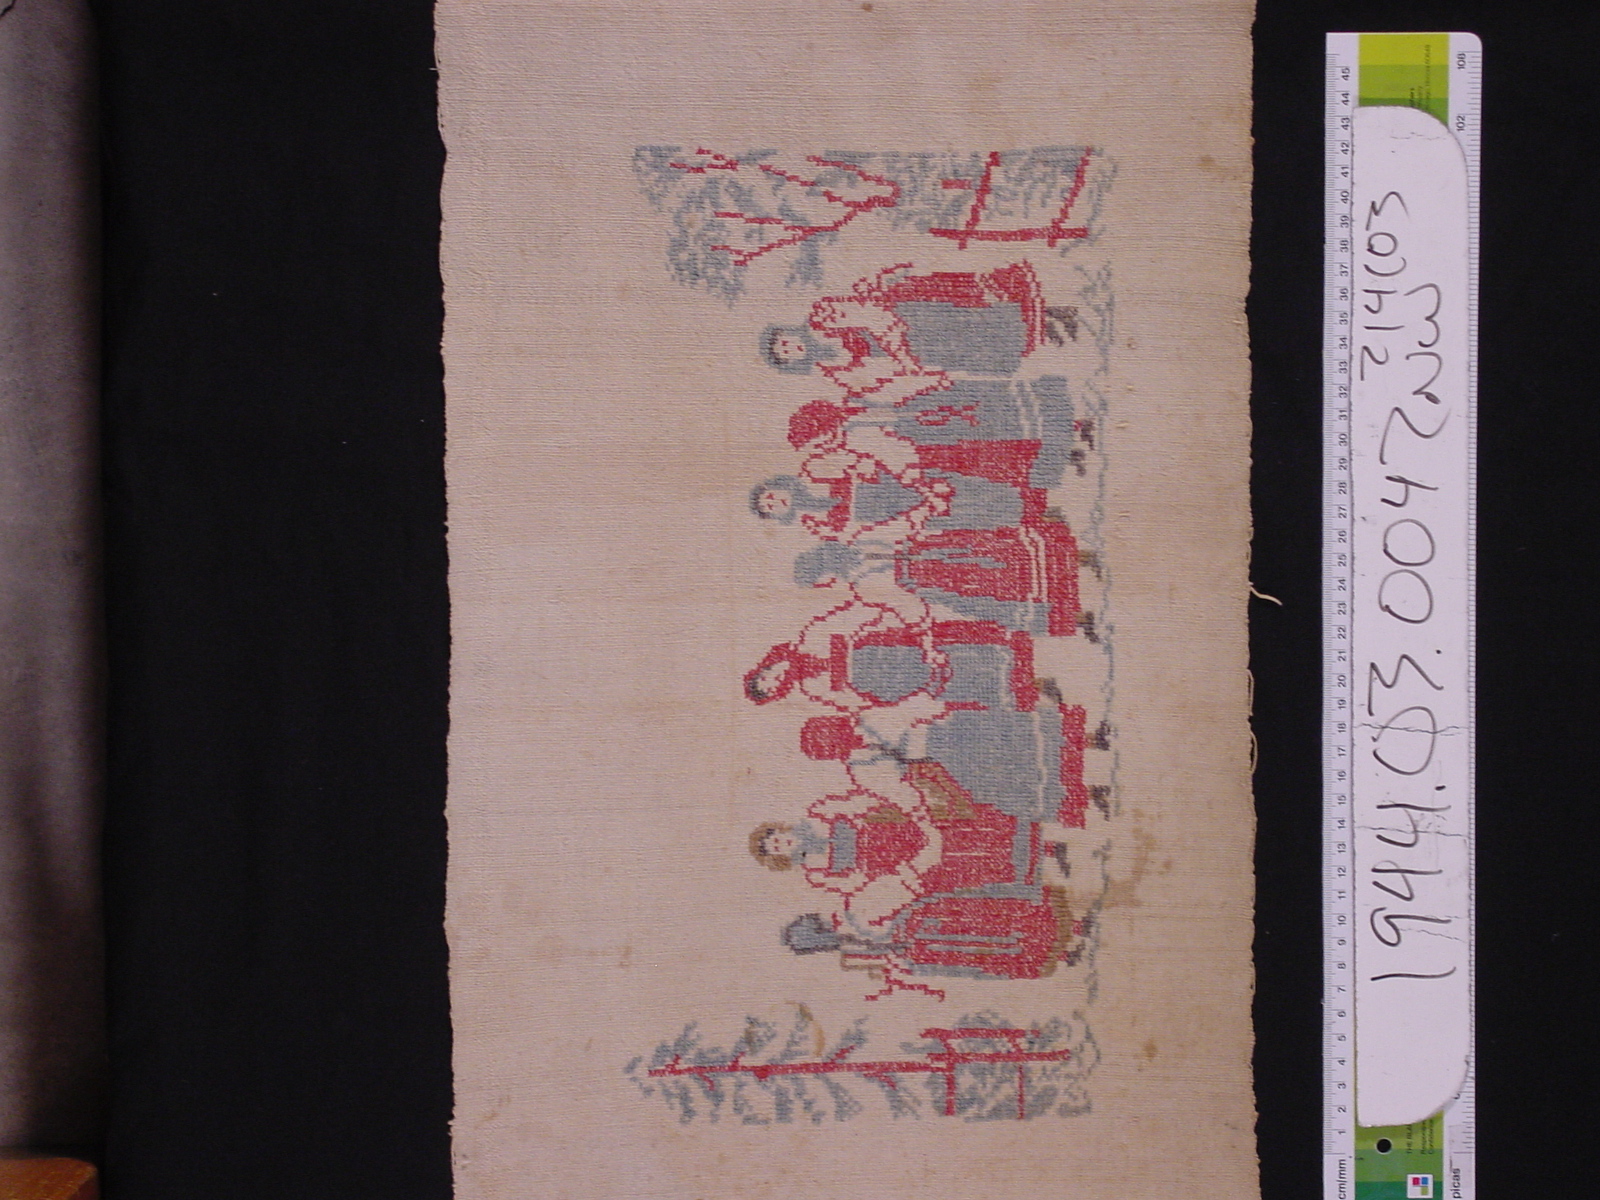 1944.03.0047
21403
NW
cm/mm 1 2 3 4 5 6 7 8 9 10 11 12 13 14 15 16 17 18 19 20 21 22 23 24 25 26 27 28 29 30 31 32 33 34 35 36 37 38 39 40 41 42 43 44 45
picas 102 108